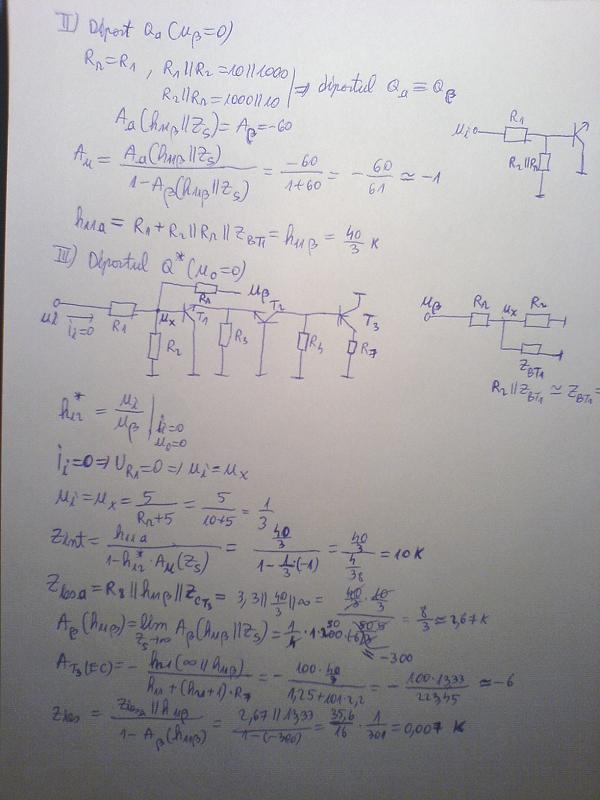 II) Diport Qa (uβ=0)
Rr=R1 , R1||R2=10||1000
R2||Rr=1000||10 | ⇒ diportul Qa ≡ Qβ
Aa(h11β||Zs)=Aβ=-60
Au= Aa(h11β||Zs) / 1-Aβ(h11β||Zs) = -60 / 1+60 = - 60/61 ≃ -1
ui R1 R2||Rr
h11a= R1+R2||Rr||ZBT1=h11β= 40/3 K
III) Diportul Q* (u0=0)
Rr uβ
ui ii=0 R1 ux T1 T2 T3
R2 R3 R4 R7
uβ Rr ux R2
ZBT1
R2||ZBT1≃ZBT1=
h12* = ui/uβ | ii=0 u0=0
ii=0⇒UR1=0⇒ui=ux
ui=ux= 5 / Rr+5 = 5 / 10+5 = 1/3
Zint= h11a / 1-h12*·Au(Zs) = 40/3 / 1-1/3·(-1) = 40/3 / 4/3 =10K
Zies a=R8||h11β||ZCT3= 3,3||40/3||∞= = 8/3≃2,67K
Aβ(h11β)=lim Zs→∞ Aβ(h11β||Zs)= =-300
AT3(EC)=- h21(∞||h11β) / h11+(h21+1)·R7 =- 100·40/3 / 1,25+101·2,2 =- 100·1333 / 22345 ≃-6
Zies= Zies a||h11β / 1-Aβ(h11β) = 2,67||1333 / 1-(-300) = 35,6/16 · 1/301 =0,007 K